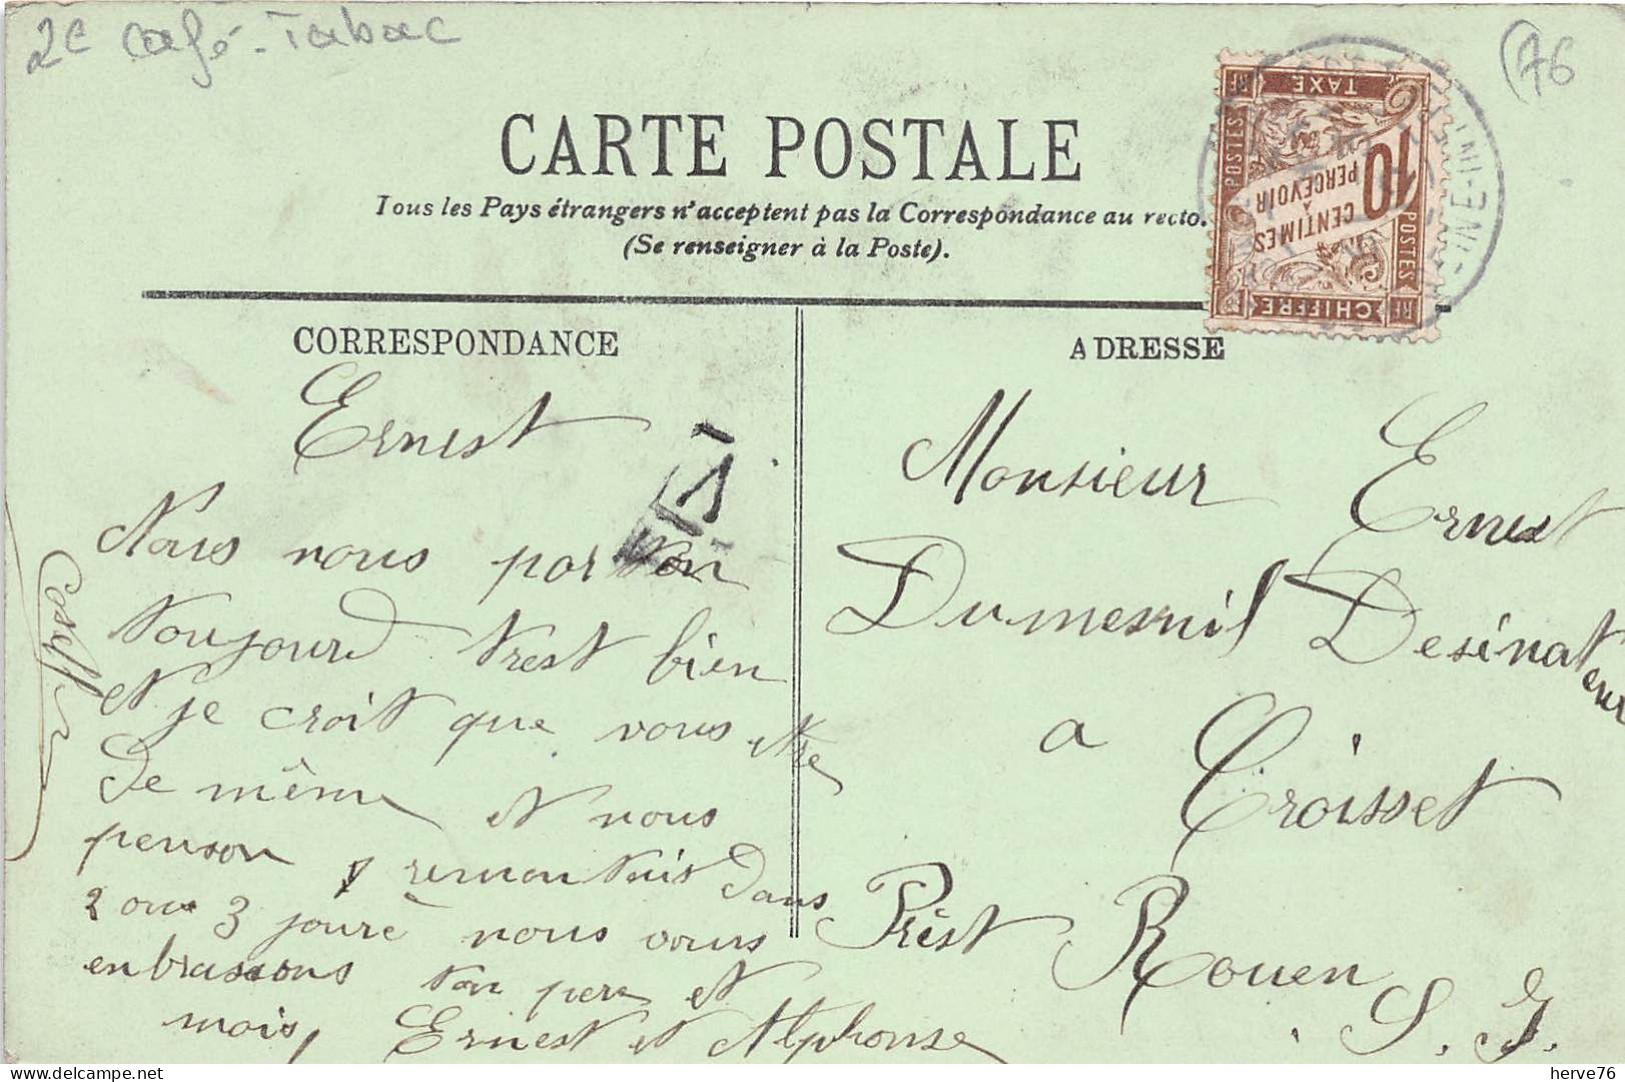 2e Café-Tabac
(76
CARTE POSTALE
Tous les Pays étrangers n'acceptent pas la Correspondance au recto.
(Se renseigner à la Poste).
CHIFFRE TAXE
POSTES
POSTES
RF
10
CENTIMES
A
PERCEVOIR
CORRESPONDANCE
ADRESSE
Ernest
Nous nous porton
toujourd trest bien
et je croit que vous etre
de même et nous
penson y remontais dans
2 ou 3 joure nous vous
enbrassons ton pere et
mois, Ernest et Alphonse
T
Monsieur Ernest
Dumesnil Desinateur
a Croisset
Prèst Rouen
S. I.
herve76